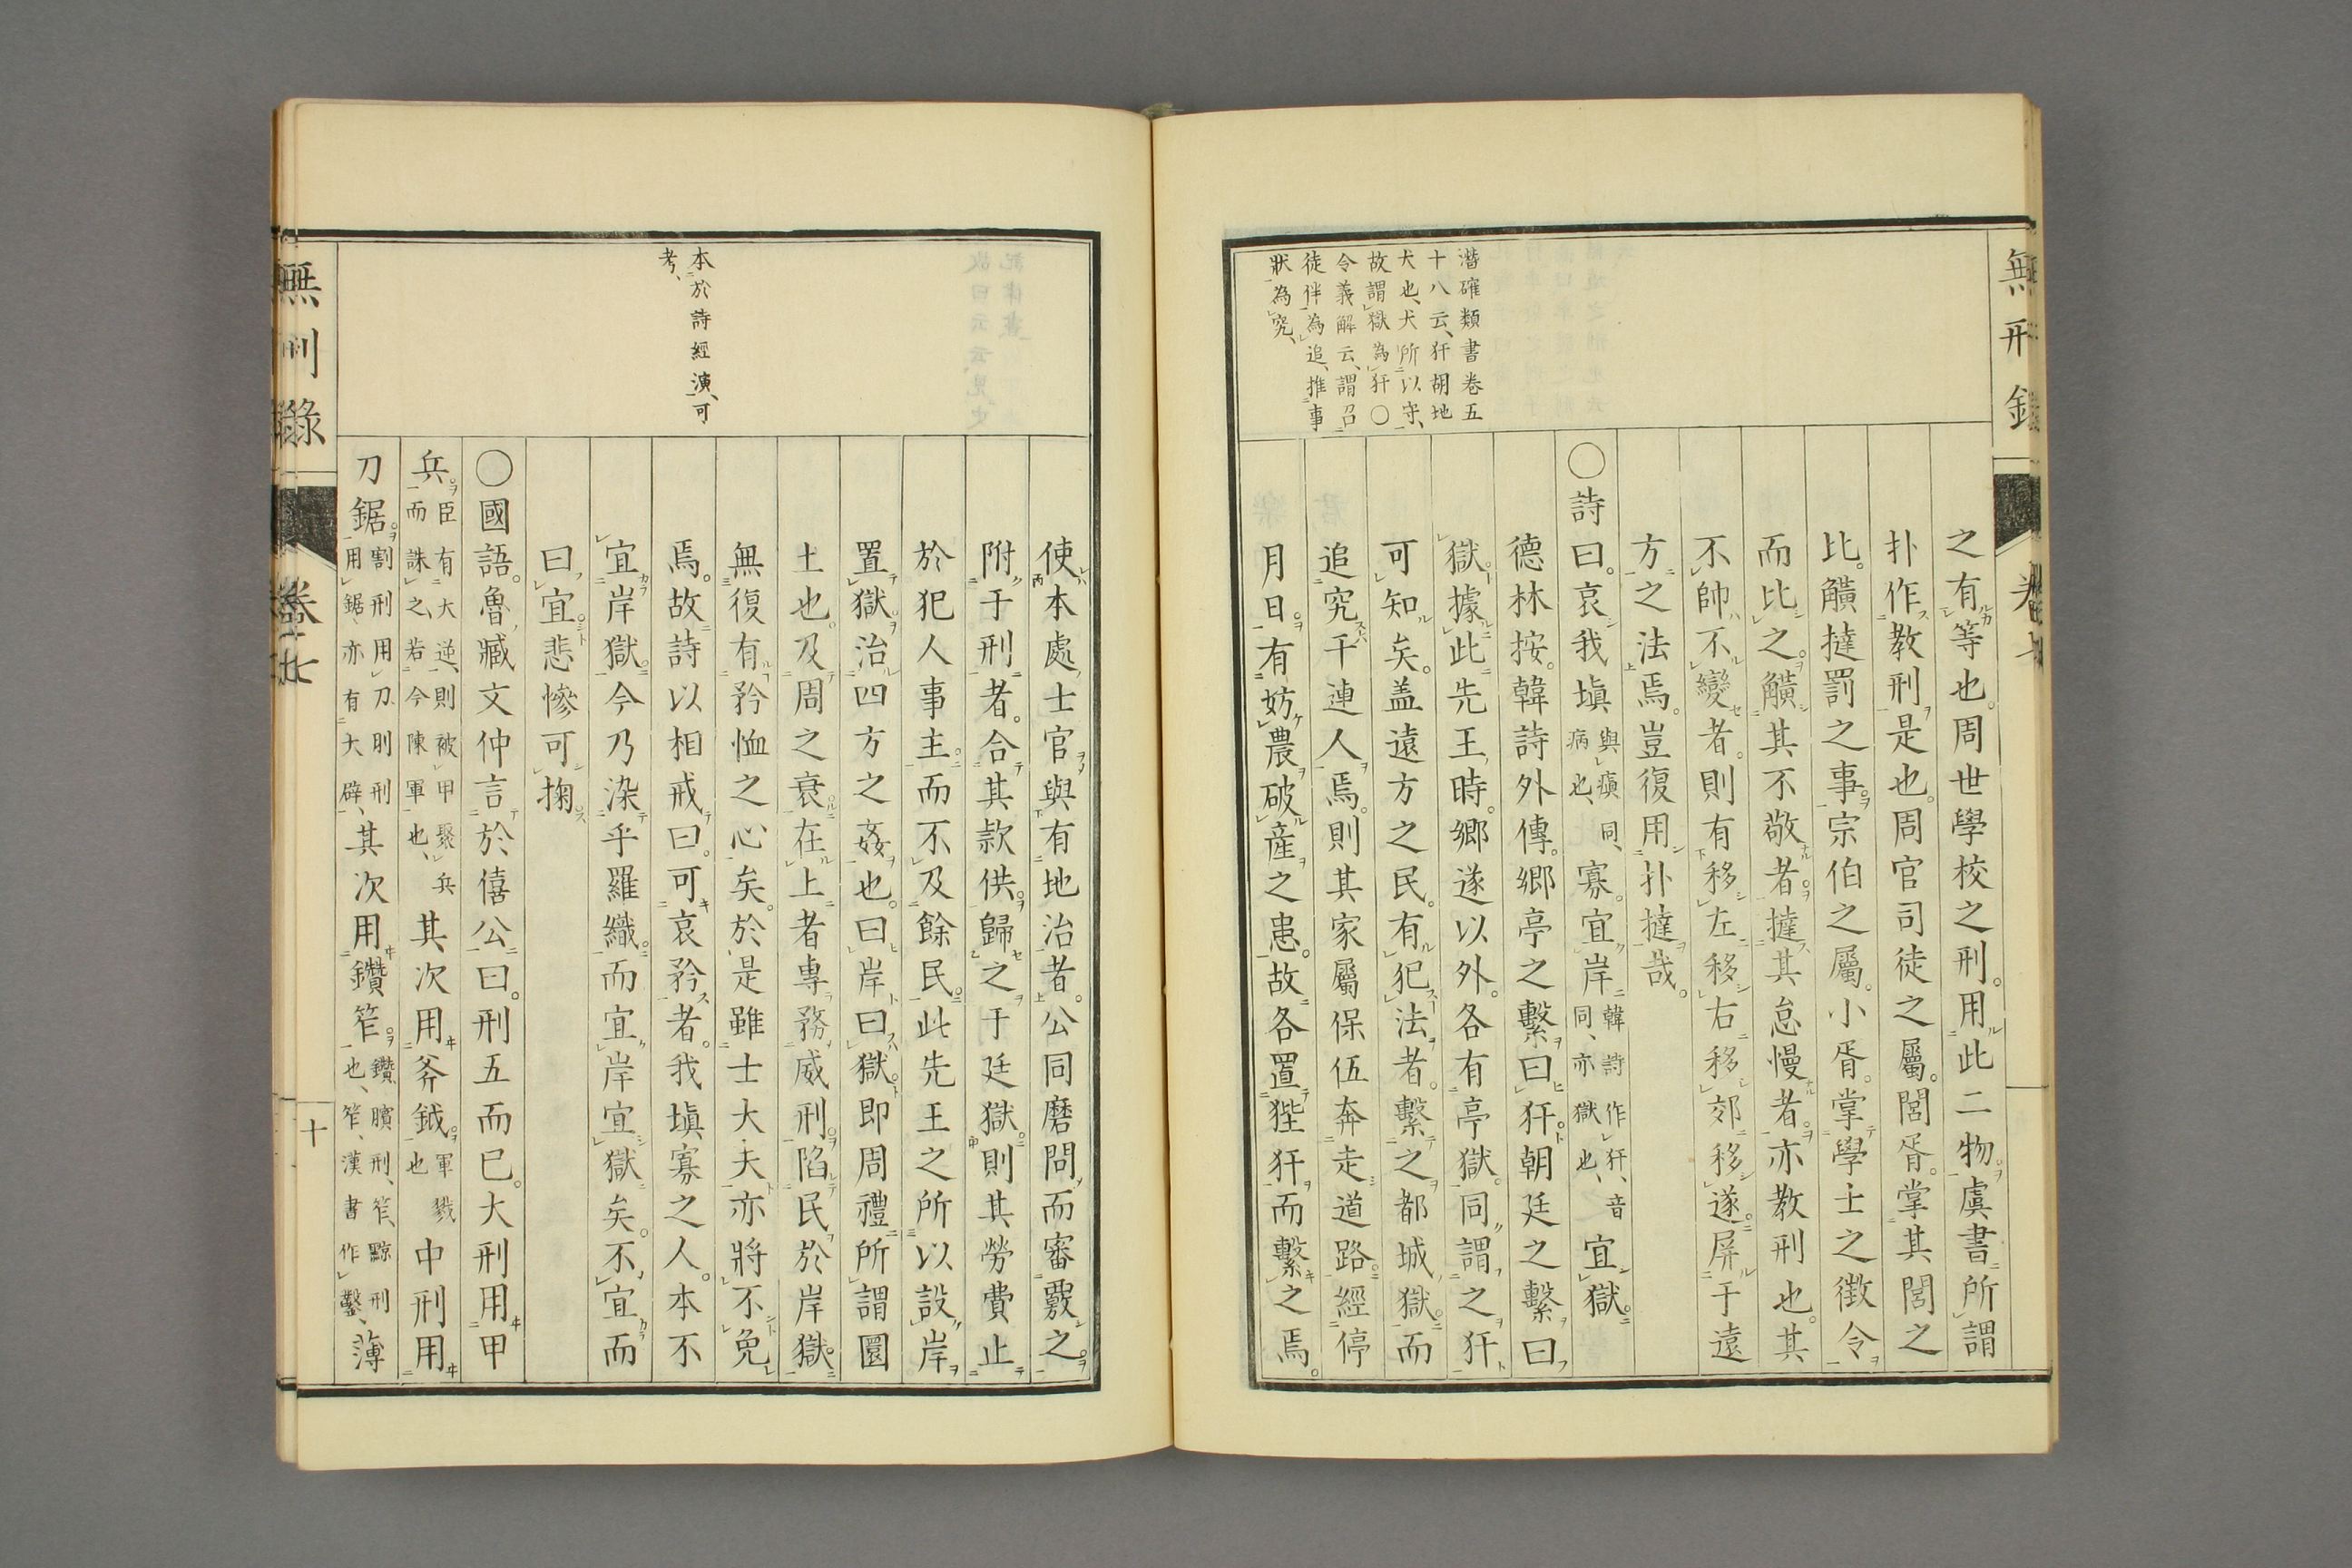 無刑錄
卷十
潛確類書卷五
十八云、犴胡地
犬也、犬所以守、
故謂獄為犴〇
令義解云、謂召
徒伴為追、推事
狀為究、
之有等也。周世學校之刑。用此二物。虞書所謂
扑作教刑是也。周官司徒之屬。閭胥。掌其閭之
比。觵撻罰之事。宗伯之屬。小胥。掌學士之徵令
而比之。觵其不敬者。撻其怠慢者。亦教刑也。其
不帥不變者。則有移左移右移郊移遂。屏于遠
方之法焉。豈復用扑撻哉。
〇詩曰。哀我塡與瘨同、病也、寡。宜岸韓詩作犴、音同、亦獄也、宜獄
德林按。韓詩外傳。鄉亭之繫曰犴。朝廷之繫曰
獄。據此先王時。鄉遂以外。各有亭獄。同謂之犴
可知矣。盖遠方之民。有犯法者。繫之都城獄。而
追究干連人焉。則其家屬保伍奔走道路。經停
月日。有妨農破產之患。故各置狴犴而繫之焉。
使本處士官與有地治者。公同磨問而審覈之。
附于刑者。合其款供。歸之于廷獄。則其勞費止
於犯人事主。而不及餘民。此先王之所以設岸
置獄。治四方之姦也。曰岸曰獄。即周禮所謂圜
土也。及周之衰。在上者專務威刑。陷民於岸獄。
無復有矜恤之心矣。於是雖士大夫亦將不免
焉。故詩以相戒曰。可哀矜者。我塡寡之人。本不
宜岸獄。今乃染乎羅織。而宜岸宜獄矣。不宜而
曰宜。悲慘可掬。
〇國語。魯臧文仲言於僖公曰。刑五而已。大刑用甲
兵。臣有大逆、則被甲聚兵而誅之、若今陳軍也、其次用斧鉞。軍戮也中刑用
刀鋸。割刑用刀、刖刑用鋸、亦有大辟、其次用鑽笮。鑽、臏刑、笮、黥刑也、笮、漢書作鑿、薄
本於詩經演、可
考、
無刑錄
卷七
十